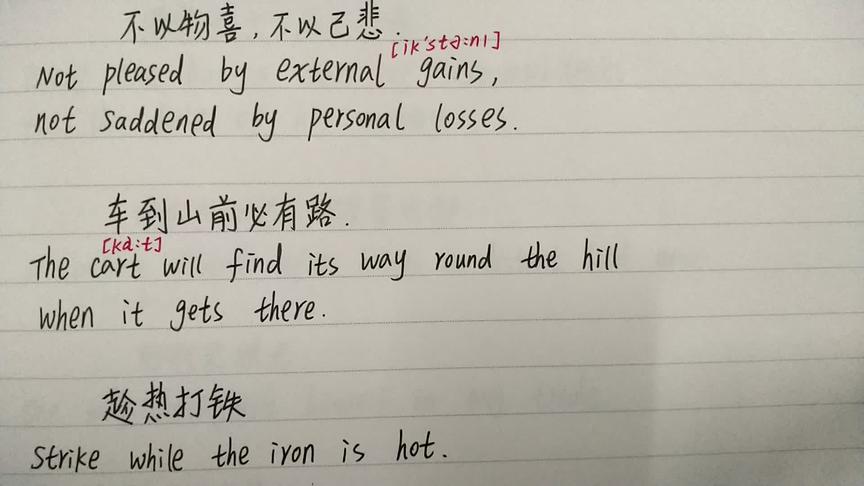 不以物喜，不以己悲.
[ik'stə:nl]
Not pleased by external gains,
not saddened by personal losses.
车到山前必有路.
[ka:t]
The cart will find its way round the hill
when it gets there.
趁热打铁
Strike while the iron is hot.